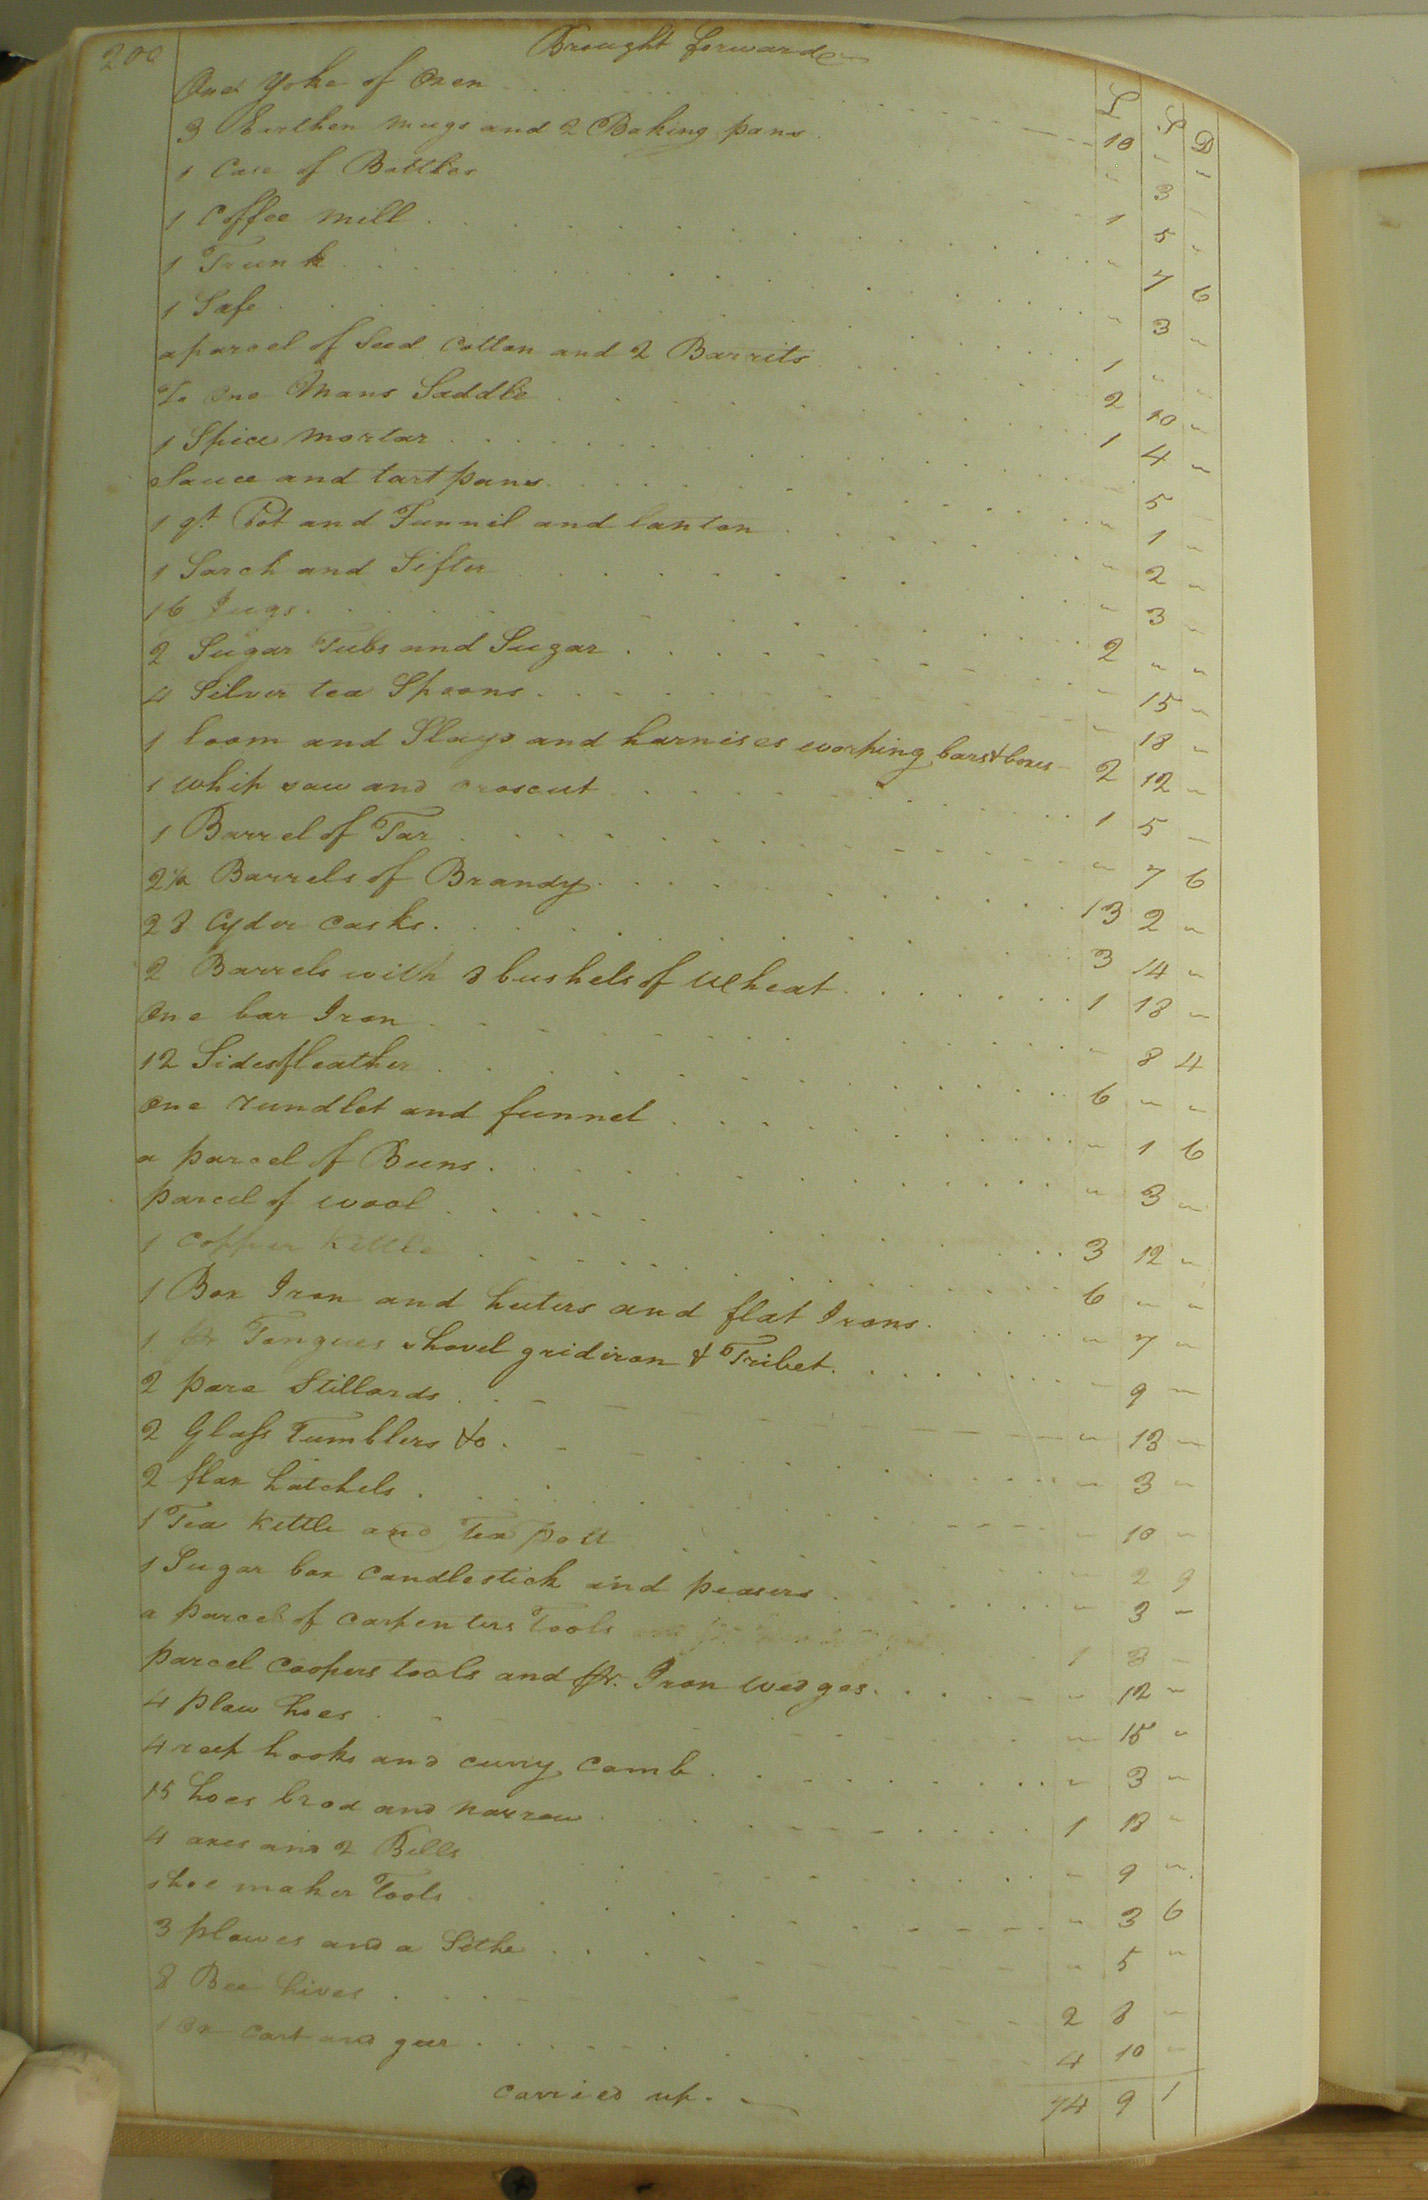 200 Brought forward
£ S D
One Yoke of Oxen 10 - -
3 Earthen mugs and 2 Baking pans - 3 -
1 Case of Bottles 1 5 -
1 Coffee mill - 7 6
1 Trunk - 3 -
1 Safe 1 - -
a parcel of Seed Cotton and 2 Barrils 2 10 -
To One Mans Saddle 1 4 -
1 Spice mortar 5 -
Sauce and tart pans - 1 -
1 qt Pot and Funnil and lanton - 2 -
1 Sarch and Sifter - 3 -
16 Jugs 2 - -
2 Sugar Tubs and Sugar - 15 -
4 Silver tea Spoons - 18 -
1 loom and Slays and harnises worping bars & boxes 2 12 -
1 whip saw and croscut 1 5 -
1 Barrel of Tar - 7 6
2½ Barrels of Brandy 13 2 -
28 Cyder casks 3 14 -
2 Barrels with 8 bushels of Wheat 1 18 -
One bar Iron - 8 4
12 Sides of leather 6 - -
One rundlet and funnel - 1 6
a parcel of Beens - 3 -
parcel of wool 3 12 -
1 copper Kettle 6 - -
1 Box Iron and heeters and flat Irons - 7 -
1 pr Tongues shovel gridiron & Tribet - 9 -
2 pare Stillards - 13 -
2 Glass Tumblers &c - 3 -
2 flax hatchels - 10 -
1 Tea Kettle and Tea pott - 2 9
1 Sugar box candlestick and - 3 -
a parcel of carpenters Tools 1 3 -
parcel coopers tools and pr. Iron wedges - 12 -
4 plow hoes - 15 -
4 reep hooks and curry comb - 3 -
15 hoes brod and narrow 1 13 -
4 axes and 2 Bells - 9 -
shoe maker Tools - 3 6
3 plowes and a Sithe - 5 -
8 Bee hives 2 8 -
1 ox cart and geer 4 10 -
carried up. 74 9 1